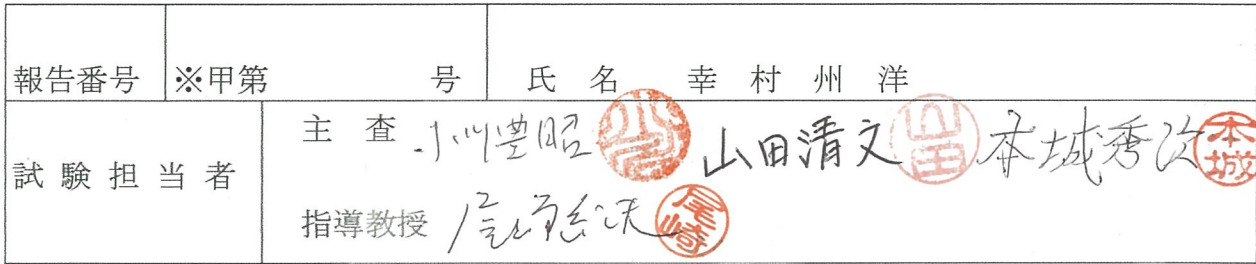 報告番号 ※甲第 号 氏名 幸村州洋
試験担当者 主査 小川豊昭 山田清文 山田 本城秀次 本城
指導教授 尾崎紀夫 尾崎